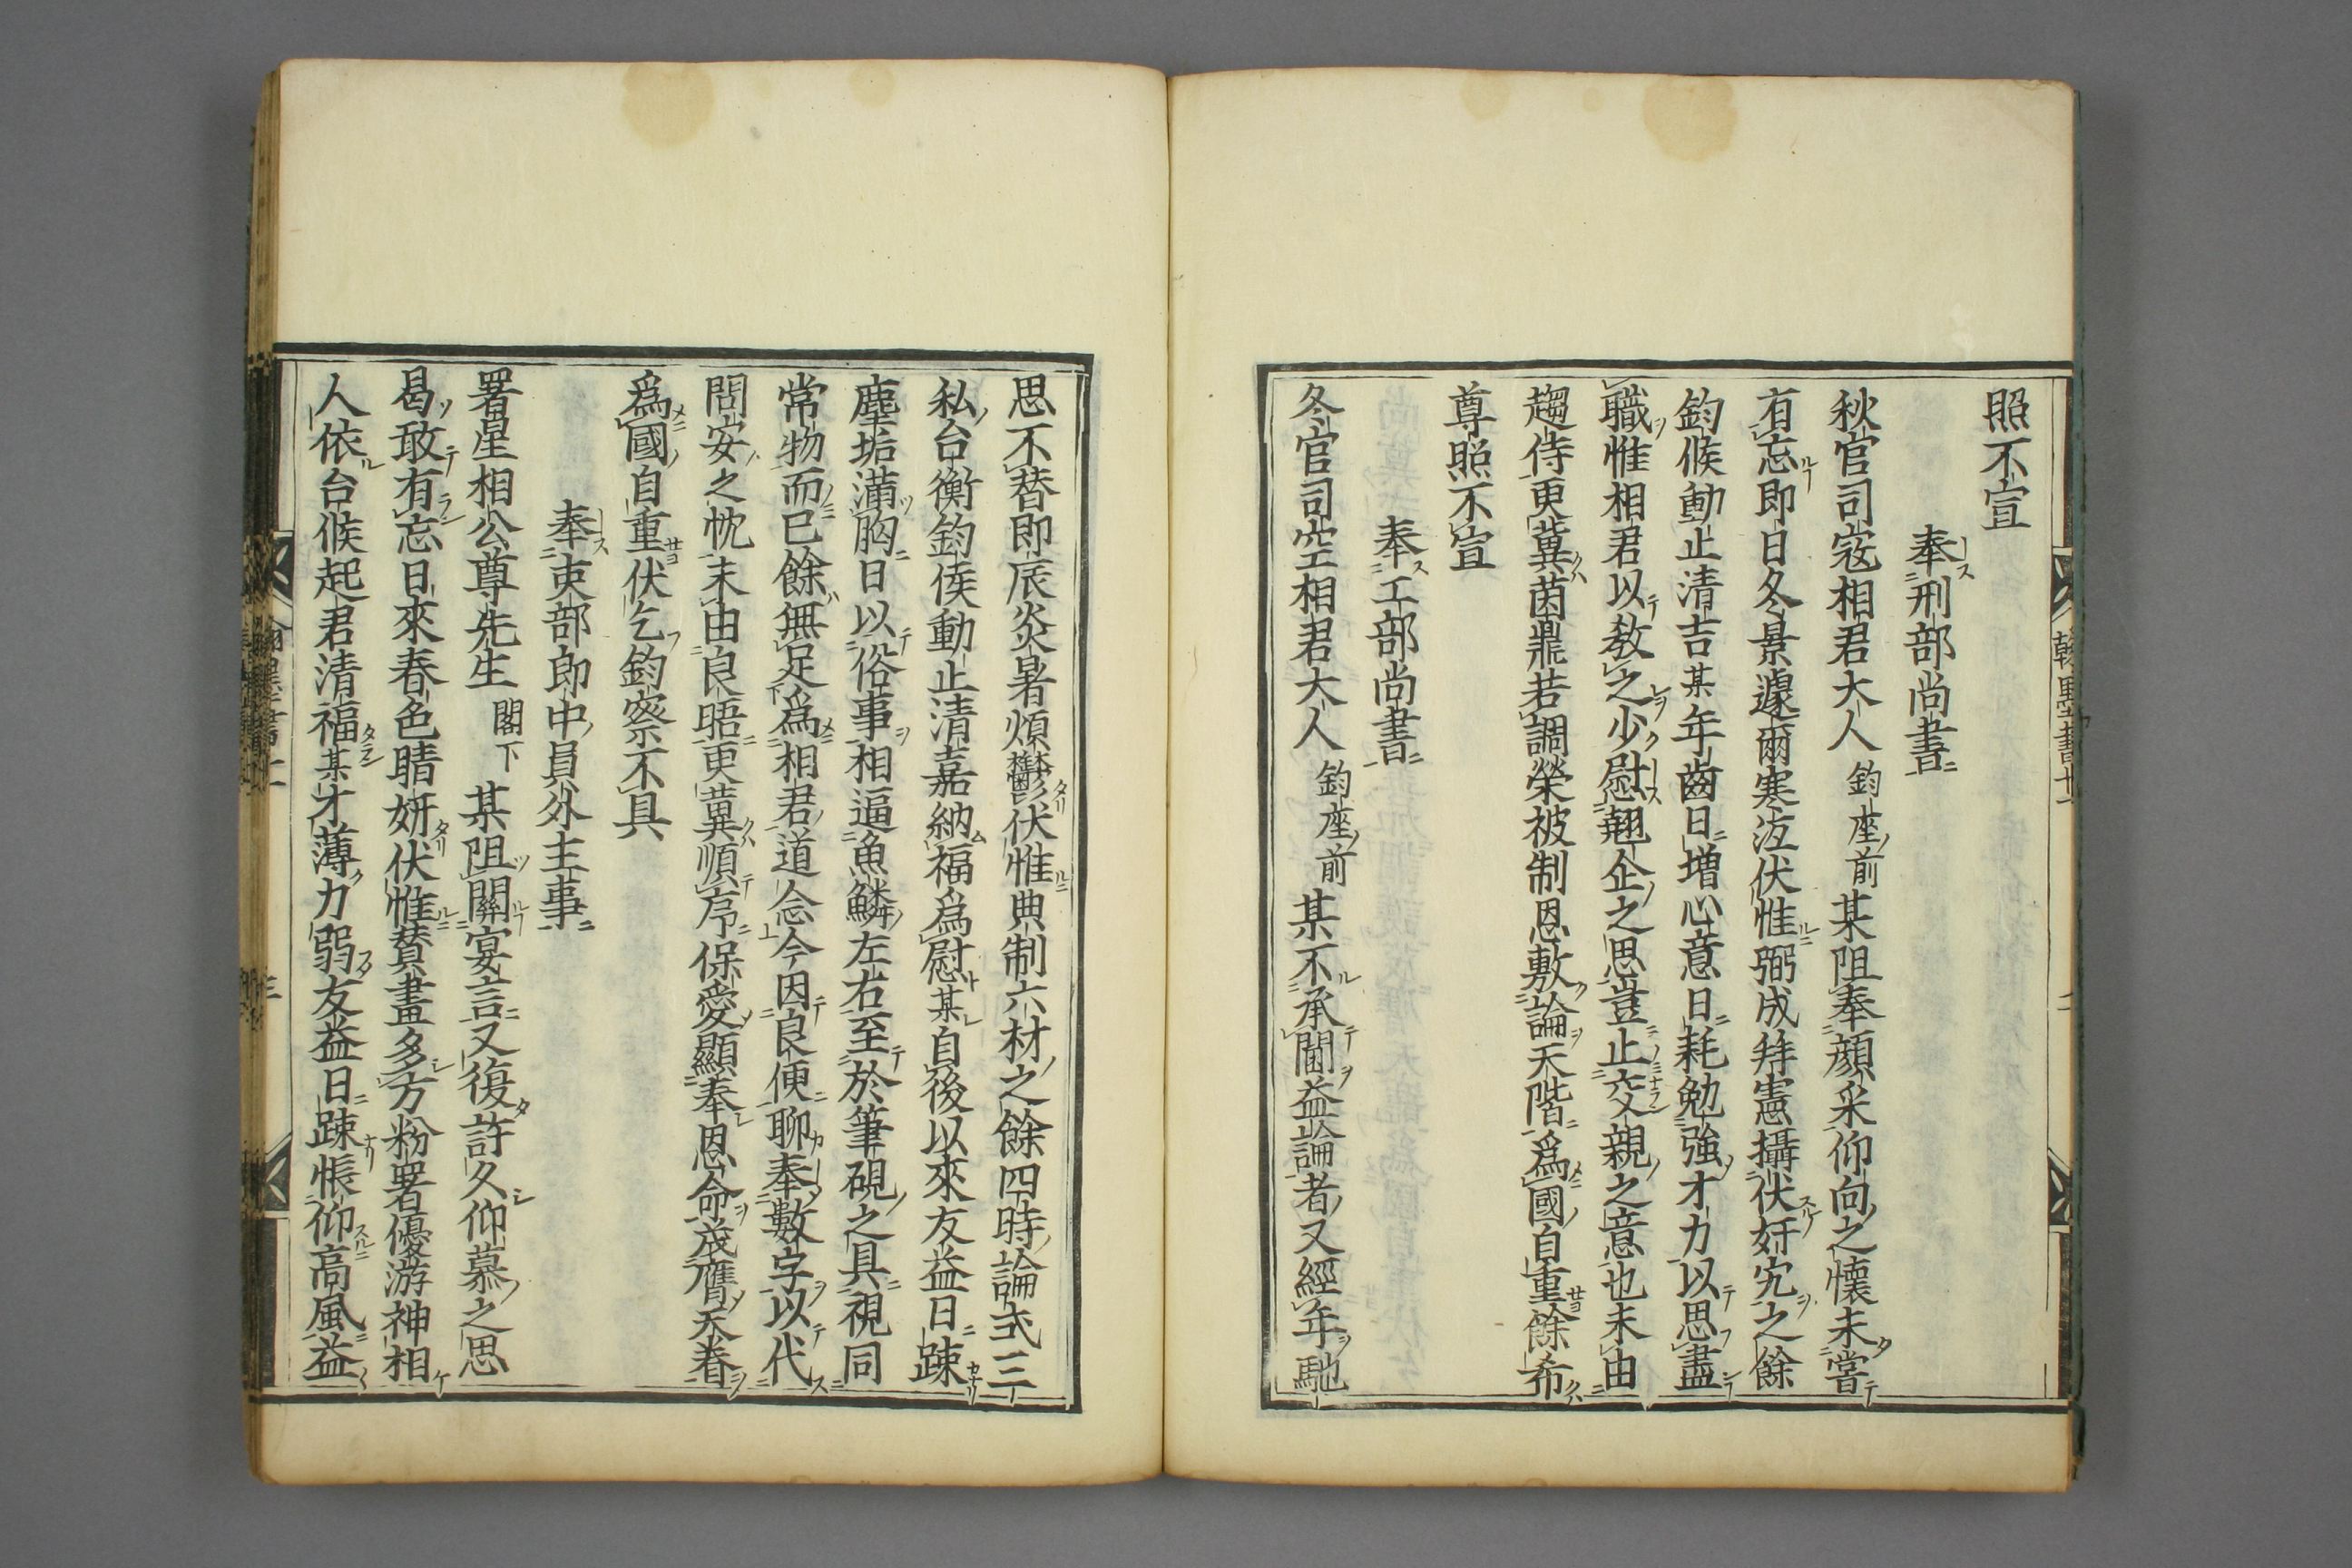 照不宣
奉刑部尚書
秋官司寇相君大人 鈞座前 某阻奉顔采仰向之懷未嘗
有忘即日冬景遽爾寒沍伏惟弼成祥憲攝伏奸宄之餘
鈞候動止清吉某年齒日増心意日耗勉強才力以思盡
職惟相君以教之少慰翹企之思豈止交親之意也未由
趨侍更冀茵鼎若調榮被制恩敷論天階爲國自重餘希
尊照不宣
奉工部尚書
冬官司空相君大人 鈞座前 某不承闓益論者又經年馳
思不替即辰炎暑煩鬱伏惟典制六材之餘四時論弎三
私台衡鈞候動止清嘉納福爲慰某自後以來友益日踈
塵垢滿胸日以俗事相逼魚鱗左右至於筆硯之具視同
常物而已餘無足爲相君道念今因良便聊奉數字以代
問安之忱末由良晤更冀順序保愛顯奉恩命茂膺天眷
爲國自重伏乞鈞察不具
奉吏部郎中員外主事
署星相公尊先生 閣下 某阻關宴言又復許久仰慕之思
曷敢有忘日來春色晴妍伏惟賛畫多方粉署優游神相
人依台候起君清福某才薄力弱友益日踈悵仰高風益
翰墨書廿一
二
三